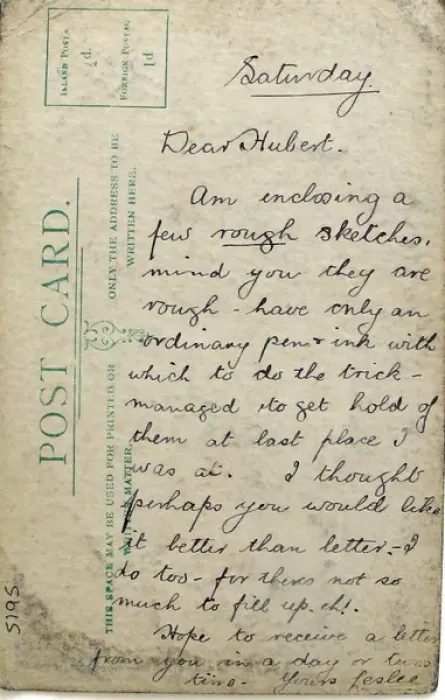 Saturday.
Dear Hubert.
Am enclosing a
few rough sketches.
mind you they are
rough - have only an
ordinary pen & ink with
which to do the trick -
managed to get hold of
them at last place I
was at. I thought
perhaps you would like
it better than letter - I
do too - for theres not so
much to fill up. eh!.
Hope to receive a letter
from you in a day or two's
time. Yours Leslie
POST CARD.
THIS SPACE MAY BE USED FOR PRINTED OR
WRITTEN MATTER.
ONLY THE ADDRESS TO BE
WRITTEN HERE.
INLAND POSTAGE
½d.
FOREIGN POSTAGE
1d
5195